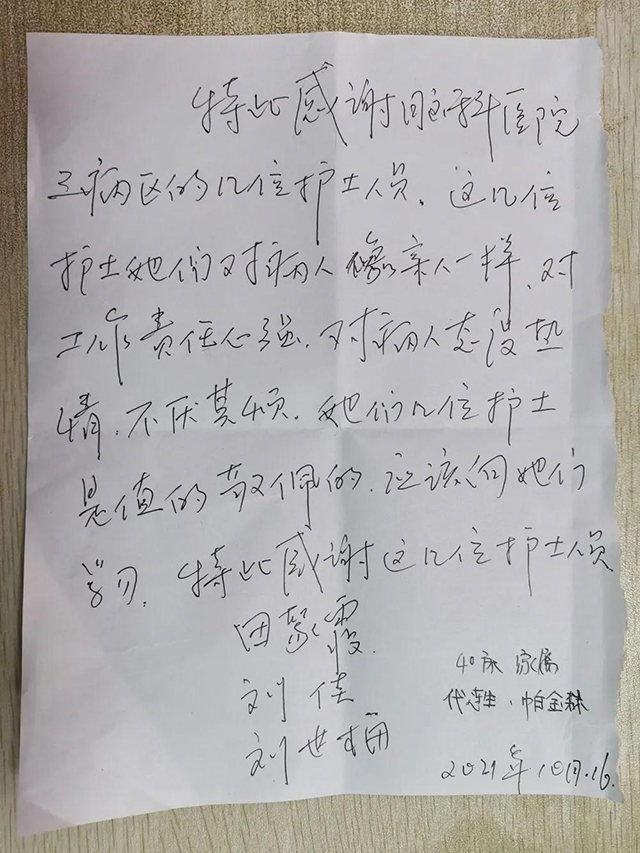 特此感谢脑科医院
三病区的几位护士人员、这几位
护士她们对病人像亲人一样、对
工作责任心强、对病人态度热
情、不厌其烦、她们几位护士
是值的敬佩的、应该向她们
学习、特此感谢这几位护士人员
田霞
刘佳
刘世梅
40床 家属
代 帕金森
2021年10月.16.